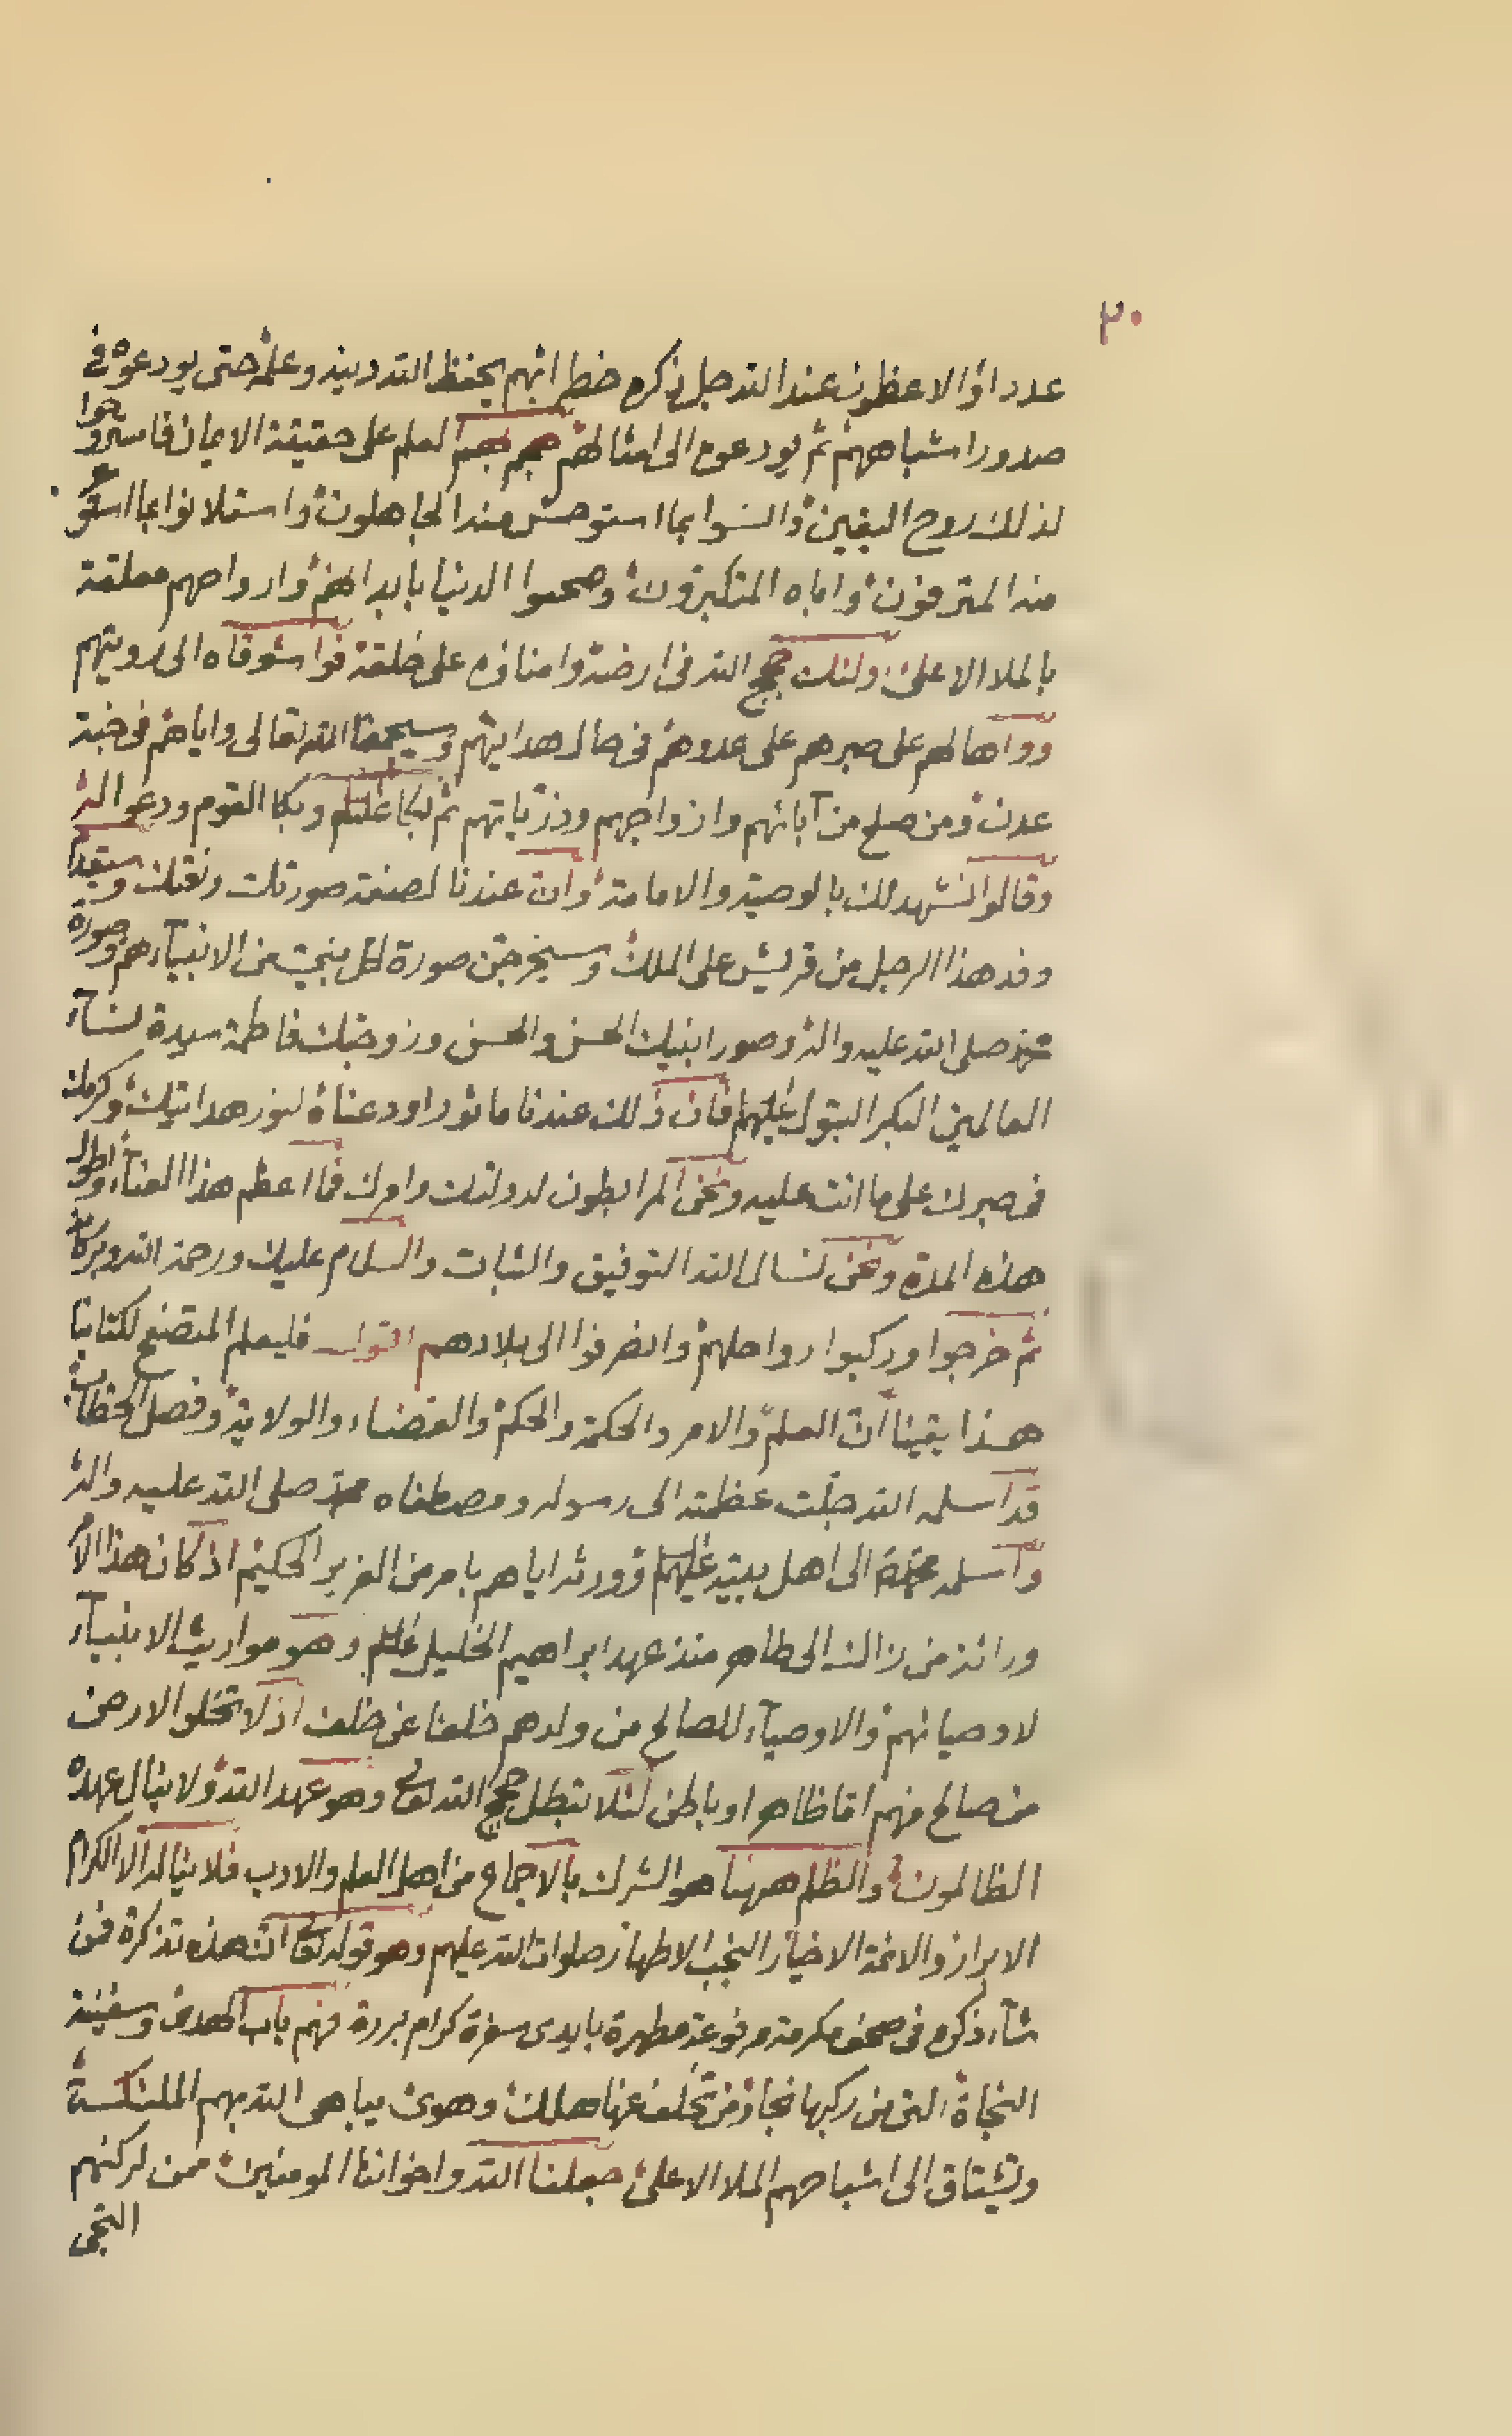 ٣٠
عددا والاعظمون عند الله جل ذكره خطرا بهم يحفظ الله دينه وعلمه حتى يودعوه في
صدور اشباههم ثم يودعوه الى امثالهم هجم بهم العلم على حقيقة الايمان فاستروحوا
لذلك روح اليقين وانسوا بما استوحش منه الجاهلون واستلانوا ما استوعر
منه المترفون واباه المتكبرون وصحبوا الدنيا بابدانهم وارواحهم معلقة
بالملا الاعلى اولئك حجج الله في ارضه وامناؤه على خلقه فوا شوقاه الى رويتهم
وواها لهم على صبرهم على عدوهم في حال هدايتهم وسيجمعنا الله تعالى واياهم في جنة
عدن ومن صلح من آبائهم وازواجهم وذرياتهم ثم بكا عليلم وبكا القوم ودعوا له
وقالوا نشهد لك بالوصية والامامة وان عندنا لصفة صورتك ونعتك وسيقدم
وفد هذا الرجل من قريش على الملك وسيخرجن صورة لكل منهم من الانبياء هم وصورة
محمد صلى الله عليه واله وصور ابنيك الحسن والحسين وزوجتك فاطمة سيدة نساء
العالمين البكر البتول عليهم فان ذلك عندنا ماثورا ودعناه لنور هدايتك وكرمك
في صبرك على ما انت عليه ونحن المرابطون لدولتك وامرك فما اعظم هذا العناء واطول
هذه المدة ونحن نسال الله التوفيق والثبات والسلام عليك ورحمة الله وبركاته
ثم خرجوا وركبوا رواحلهم وانصرفوا الى بلادهم اقول فليعلم المتصفح لكتابنا
هذا يقينا ان العلم والامر والحكمة والحكم والقضاء والولاية وفصل الخطاب
قد اسلمه الله جلت عظمته الى رسوله ومصطفاه محمد صلى الله عليه واله
واسلمه محمد الى اهل بيته عليهم وورثه اياهم بامر من العزيز الحكيم اذ كان هذا الامر
وراثة من زاكٍ الى طاهر منذ عهد ابراهيم الخليل عليلم وهو مواريث الانبياء
لاوصيائهم والاوصياء للصالح من ولدهم خلفا عن خلف اذ لا تخلو الارض
من صالح منهم اما ظاهر او باطن لئلا تبطل حجج الله تعالى وهو عهد الله ولا ينال عهده
الظالمون والظلم ههنا هو الشرك بالاجماع من اهل العلم والادب فلا يناله الا الكرام
الابرار والائمة الاخيار النجب الاطهار صلوات الله عليهم وهو قوله تعالى ان هذه تذكرة فمن
شاء ذكره في صحف مكرمة مرفوعة مطهرة بايدى سفرة كرام بررة فهم باب الهدى وسفينة
النجاة التى من ركبها نجا ومن تخلف عنها هلك وهوى يباهى الله بهم الملئكة
وتشتاق الى اشباحهم الملا الاعلى جعلنا الله واخواننا المومنين ممن لركبهم
التجى